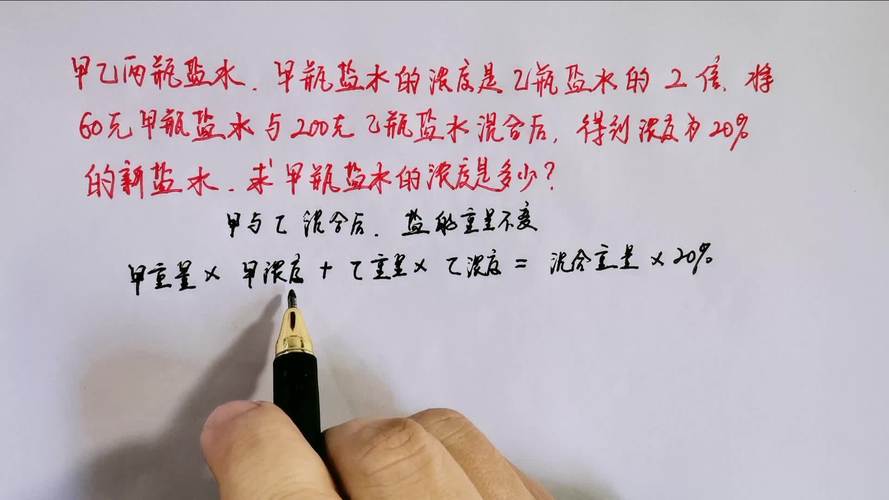 甲乙两瓶盐水.甲瓶盐水的浓度是乙瓶盐水的2倍.将
60克甲瓶盐水与200克乙瓶盐水混合后,得到浓度为20%
的新盐水.求甲瓶盐水的浓度是多少?
甲与乙混合后.盐的重量不变
甲重量×甲浓度+乙重量×乙浓度=混合重量×20%